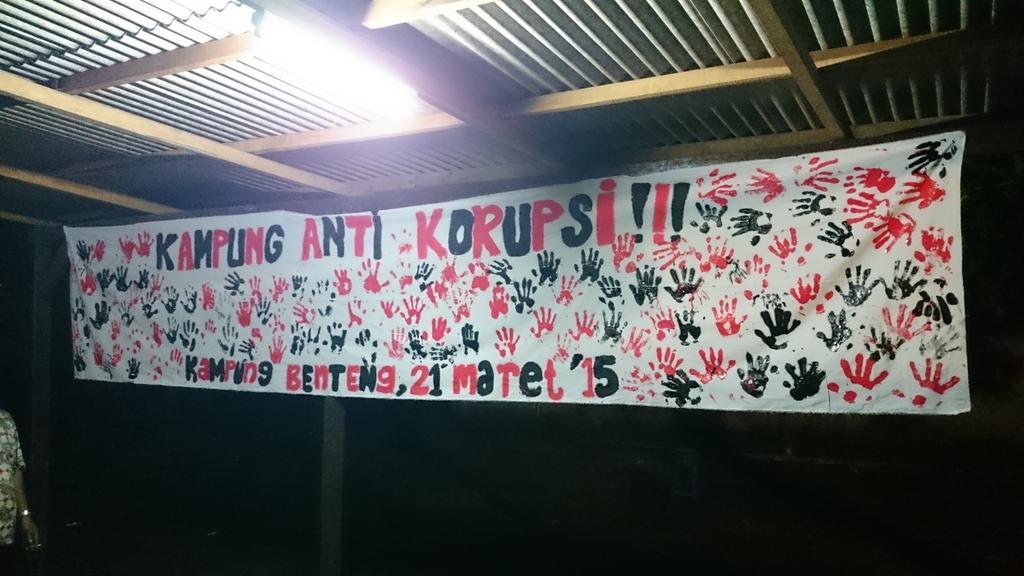 KAMPUNG ANTi KORUPSi!!!
KAMPUNG BENTENg, 21 maRet '15